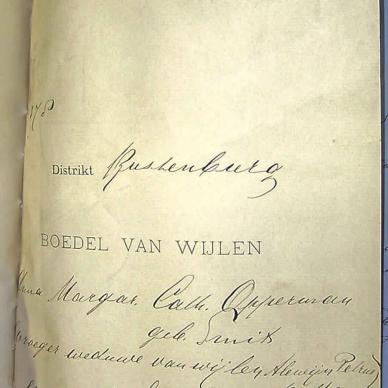 178
Distrikt Rustenburg
BOEDEL VAN WIJLEN
Anna Margar. Cath. Opperman
geb. Smit
vroeger weduwe van wijlen Alewijn Petrus